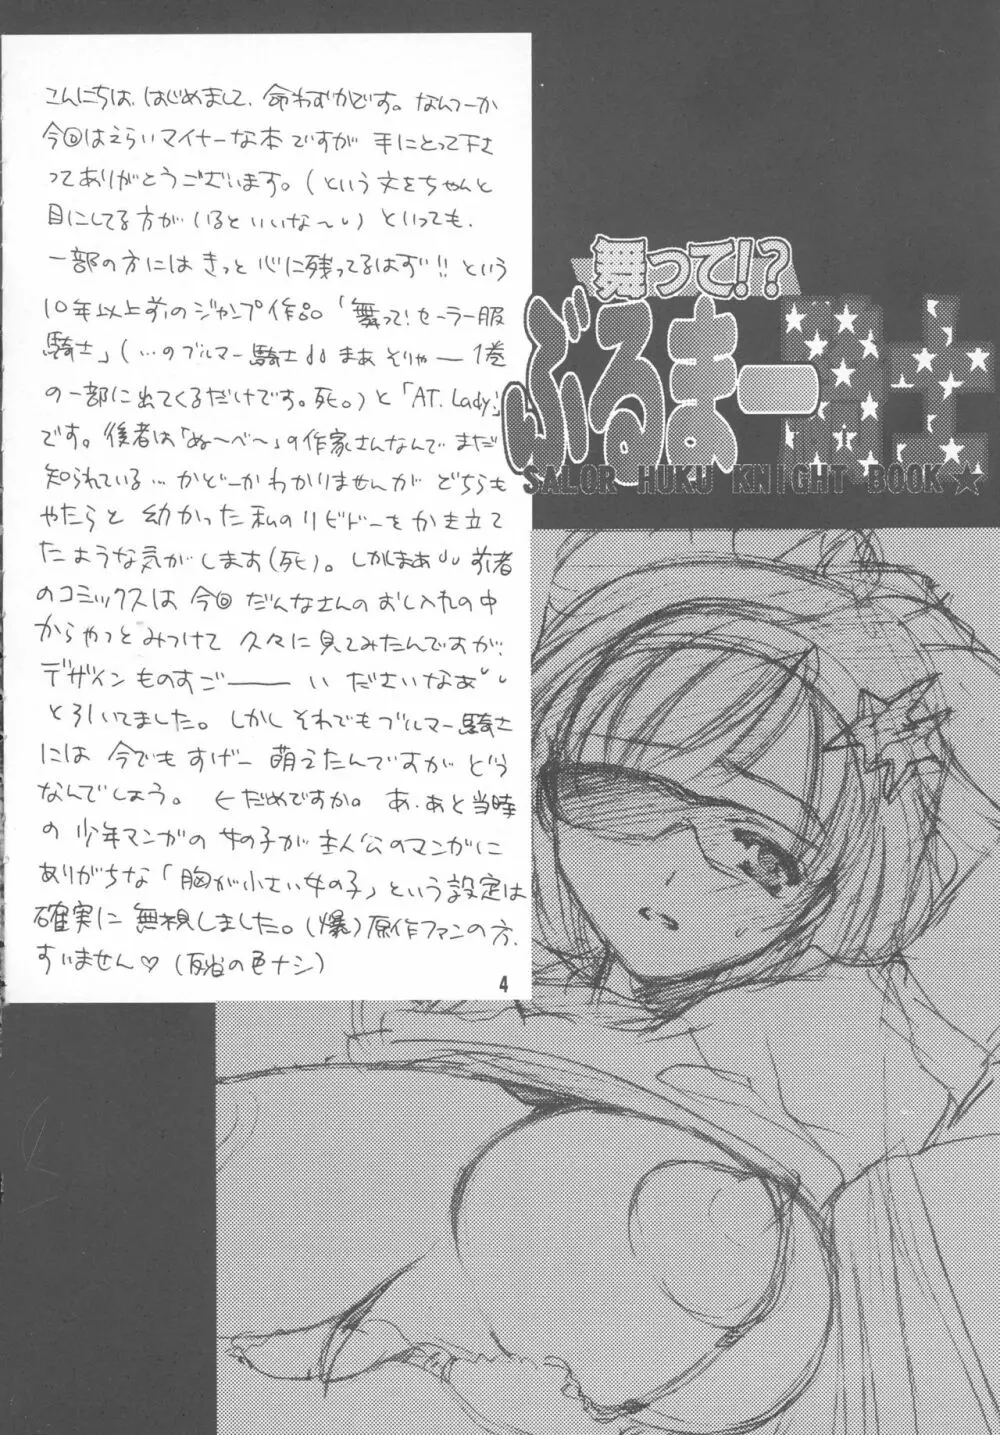 こんにちは、はじめまして、命わずかです。なんつーか
今回はえらいマイナーな本ですが 手にとって下さ
ってありがとうございます。(という文をちゃんと
目にしてる方がいるといいな〜)といっても、
一部の方には きっと 心に残ってるはず!! という
10年以上前のジャンプ作品「舞って!セーラー服
騎士」(…のブルマー騎士 まあ そりゃー 1巻
の一部に出てくるだけです。死。)と「AT. Lady」
です。後者は「ぬ〜べ〜」の作家さんなんで まだ
知られている… かどーか わかりませんが どちらも
やたらと 幼かった 私のリビドーを かき立て
たような気がします(死)。しかしまあ 前者
のコミックスは 今回 だんなさんの おし入れの中
から やっと みつけて 久々に 見てみたんですが、
デザインものすごーーーい ださいなあ
と引いてました。しかし それでもブルマー騎士
には 今でも すげー 萌えたんですが どう
なんでしょう。 ←だめですか。 あ、あと当時
の 少年マンガの 女の子が 主人公のマンガに
ありがちな「胸が小さい女の子」という設定は
確実に 無視しました。(爆)原作ファンの方、
すいません♡(反省の色ナシ)
4
舞って!?
ぶるまー騎士
SALOR HUKU KNIGHT BOOK★